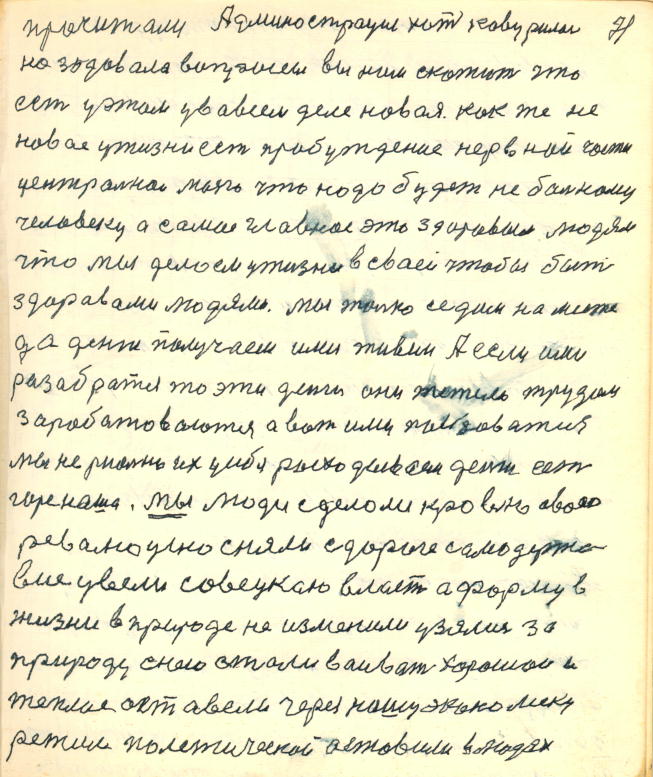 прочитали Админострацыи хотᵕ кавурилас 71
но здовала вапросыи вы ним скажит что
ест уэтом увавсем деле новая. как же не
новае ужизни ест прабуждение нервной части
централнай мазга что надо будет не балному
человеку а самае главное это здоровым людям
что мы делоем ужизни всваей чтобы быт
здаравами людями. мы толко седим на месте
да денги получаем ими живем А если ими
разабратся то эти денги они тежолы трудам
заробатоваются а вот ими ползоватися
мы не умно их усибя расходуваем денги ест
горе наша. мы люди сделоли кровлю сваею
ревалюцыю сняли сдароге самодержа
вие увели совецкаю власт а форму в
жизни в природе не изменили узялис за
природу снею стали ваиват хорошаи и
теплае оствавели через нашу экономику
режим полетической остовили в людях